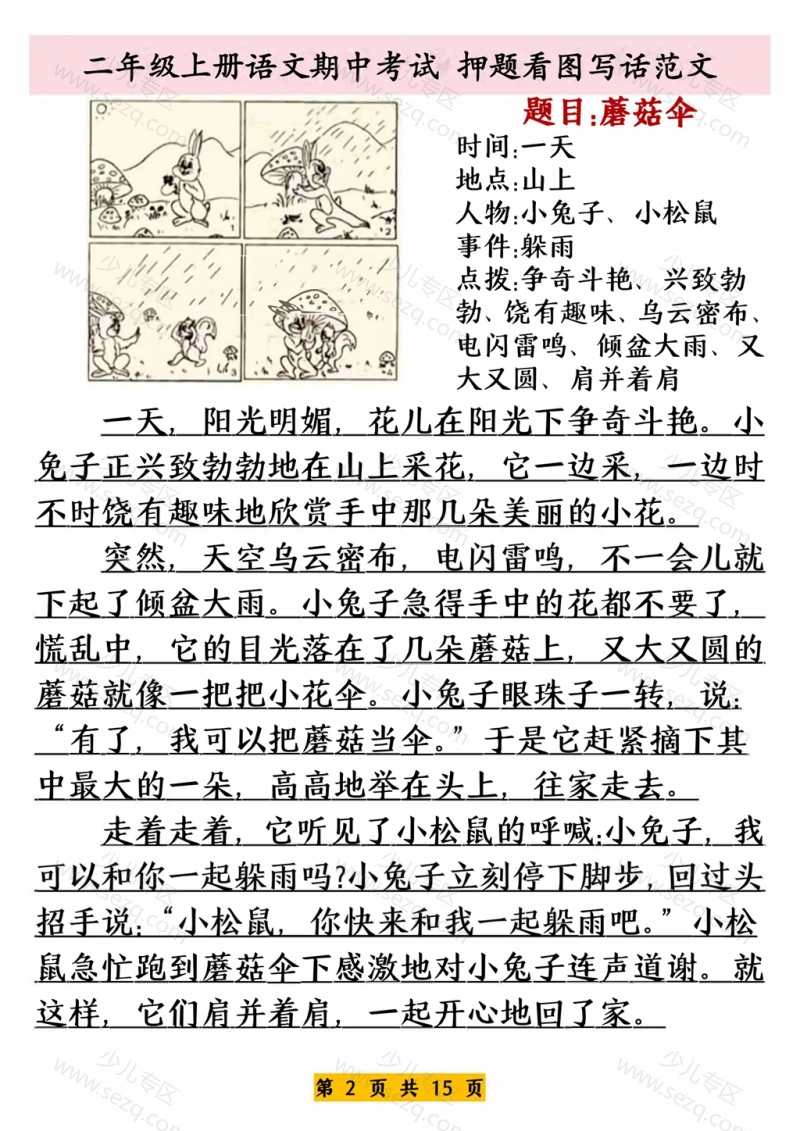 二年级上册语文期中考试 押题看图写话范文
题目:蘑菇伞
时间:一天
地点:山上
人物:小兔子、小松鼠
事件:躲雨
点拨:争奇斗艳、兴致勃
勃、饶有趣味、乌云密布、
电闪雷鸣、倾盆大雨、又
大又圆、肩并着肩
1
2
3
4
一天，阳光明媚，花儿在阳光下争奇斗艳。小
兔子正兴致勃勃地在山上采花，它一边采，一边时
不时饶有趣味地欣赏手中那几朵美丽的小花。
突然，天空乌云密布，电闪雷鸣，不一会儿就
下起了倾盆大雨。小兔子急得手中的花都不要了，
慌乱中，它的目光落在了几朵蘑菇上，又大又圆的
蘑菇就像一把把小花伞。小兔子眼珠子一转，说：
“有了，我可以把蘑菇当伞。”于是它赶紧摘下其
中最大的一朵，高高地举在头上，往家走去。
走着走着，它听见了小松鼠的呼喊:小兔子，我
可以和你一起躲雨吗?小兔子立刻停下脚步，回过头
招手说：“小松鼠，你快来和我一起躲雨吧。”小松
鼠急忙跑到蘑菇伞下感激地对小兔子连声道谢。就
这样，它们肩并着肩，一起开心地回了家。
第 2 页 共 15 页
少儿专区
www.sezq.com